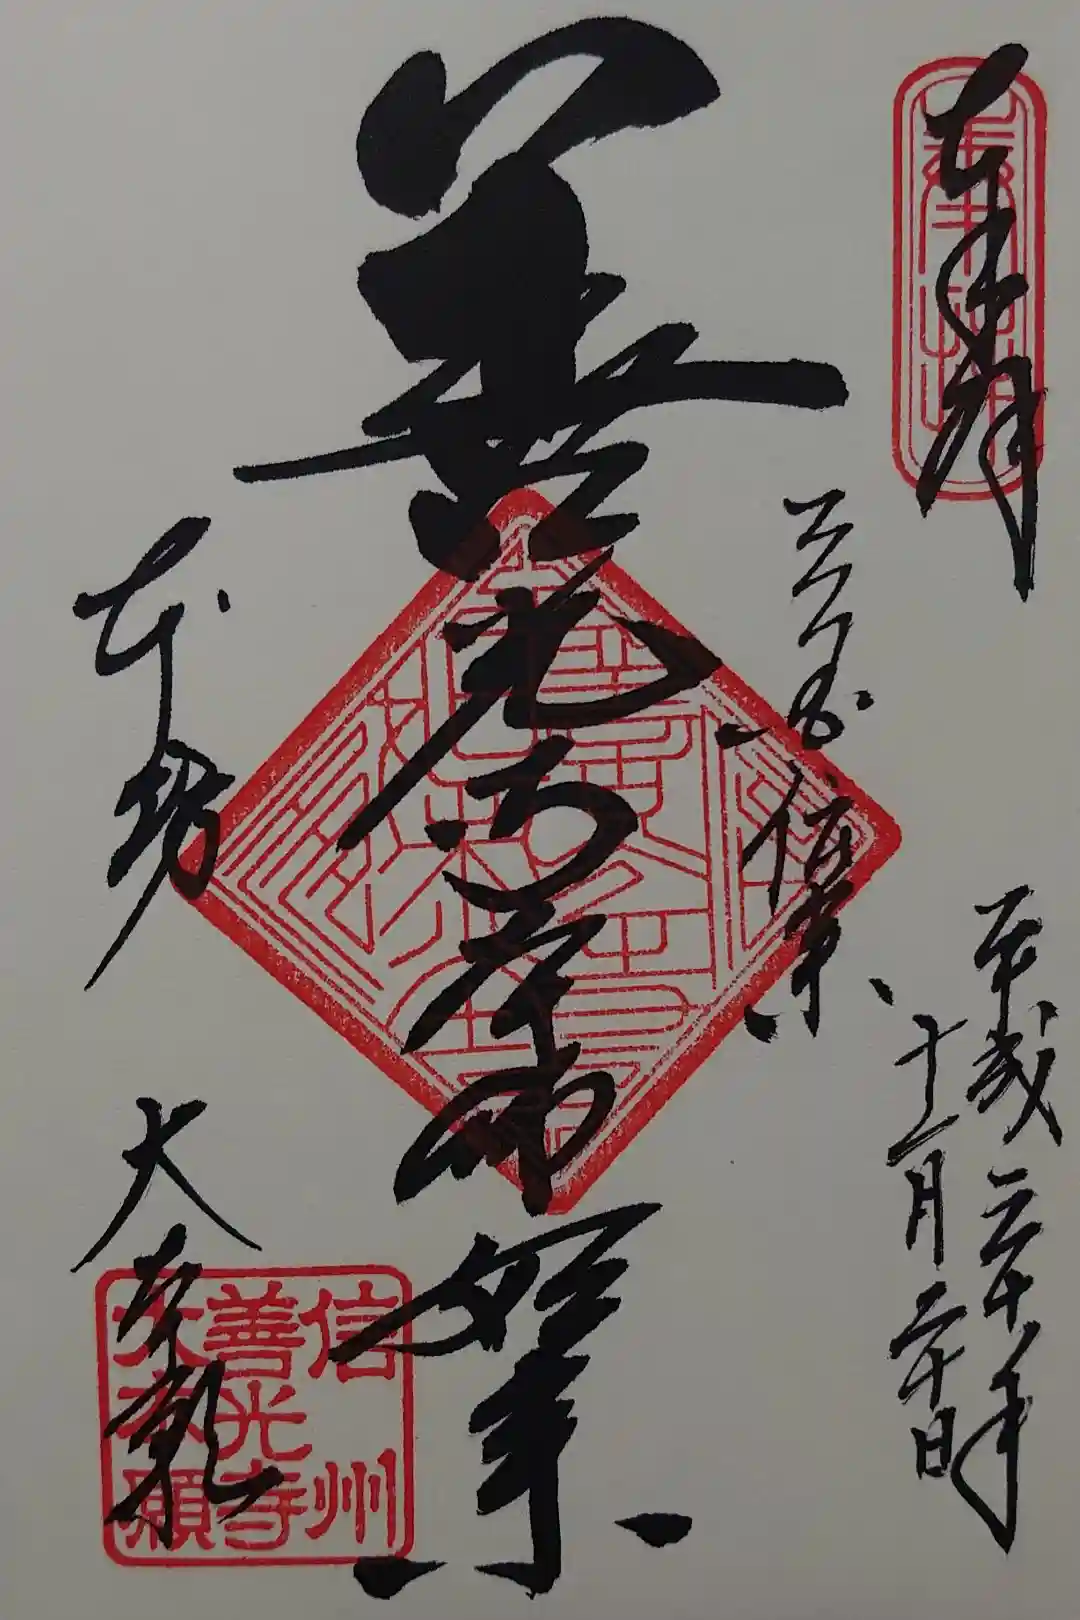 奉拝
平成三十年
十二月二十日
三国伝来
善光寺如来
本坊
大本願
信州
善光寺
大本願